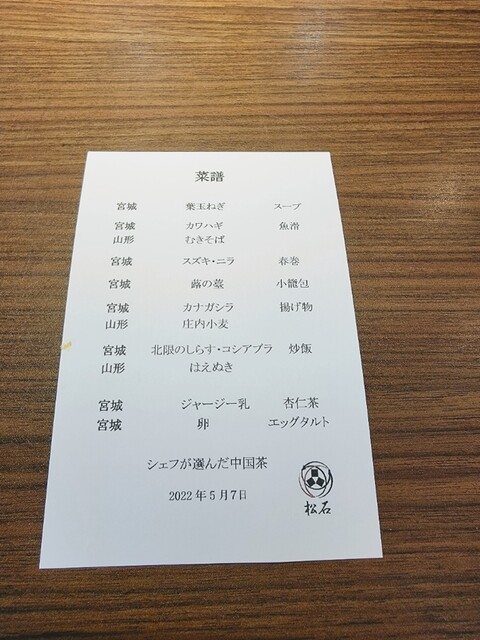 菜譜
宮城 葉玉ねぎ スープ
宮城 カワハギ 魚滑
山形 むきそば
宮城 スズキ・ニラ 春巻
宮城 蕗の薹 小籠包
宮城 カナガシラ 揚げ物
山形 庄内小麦
宮城 北限のしらす・コシアブラ 炒飯
山形 はえぬき
宮城 ジャージー乳 杏仁茶
宮城 卵 エッグタルト
シェフが選んだ中国茶
2022年5月7日
松石